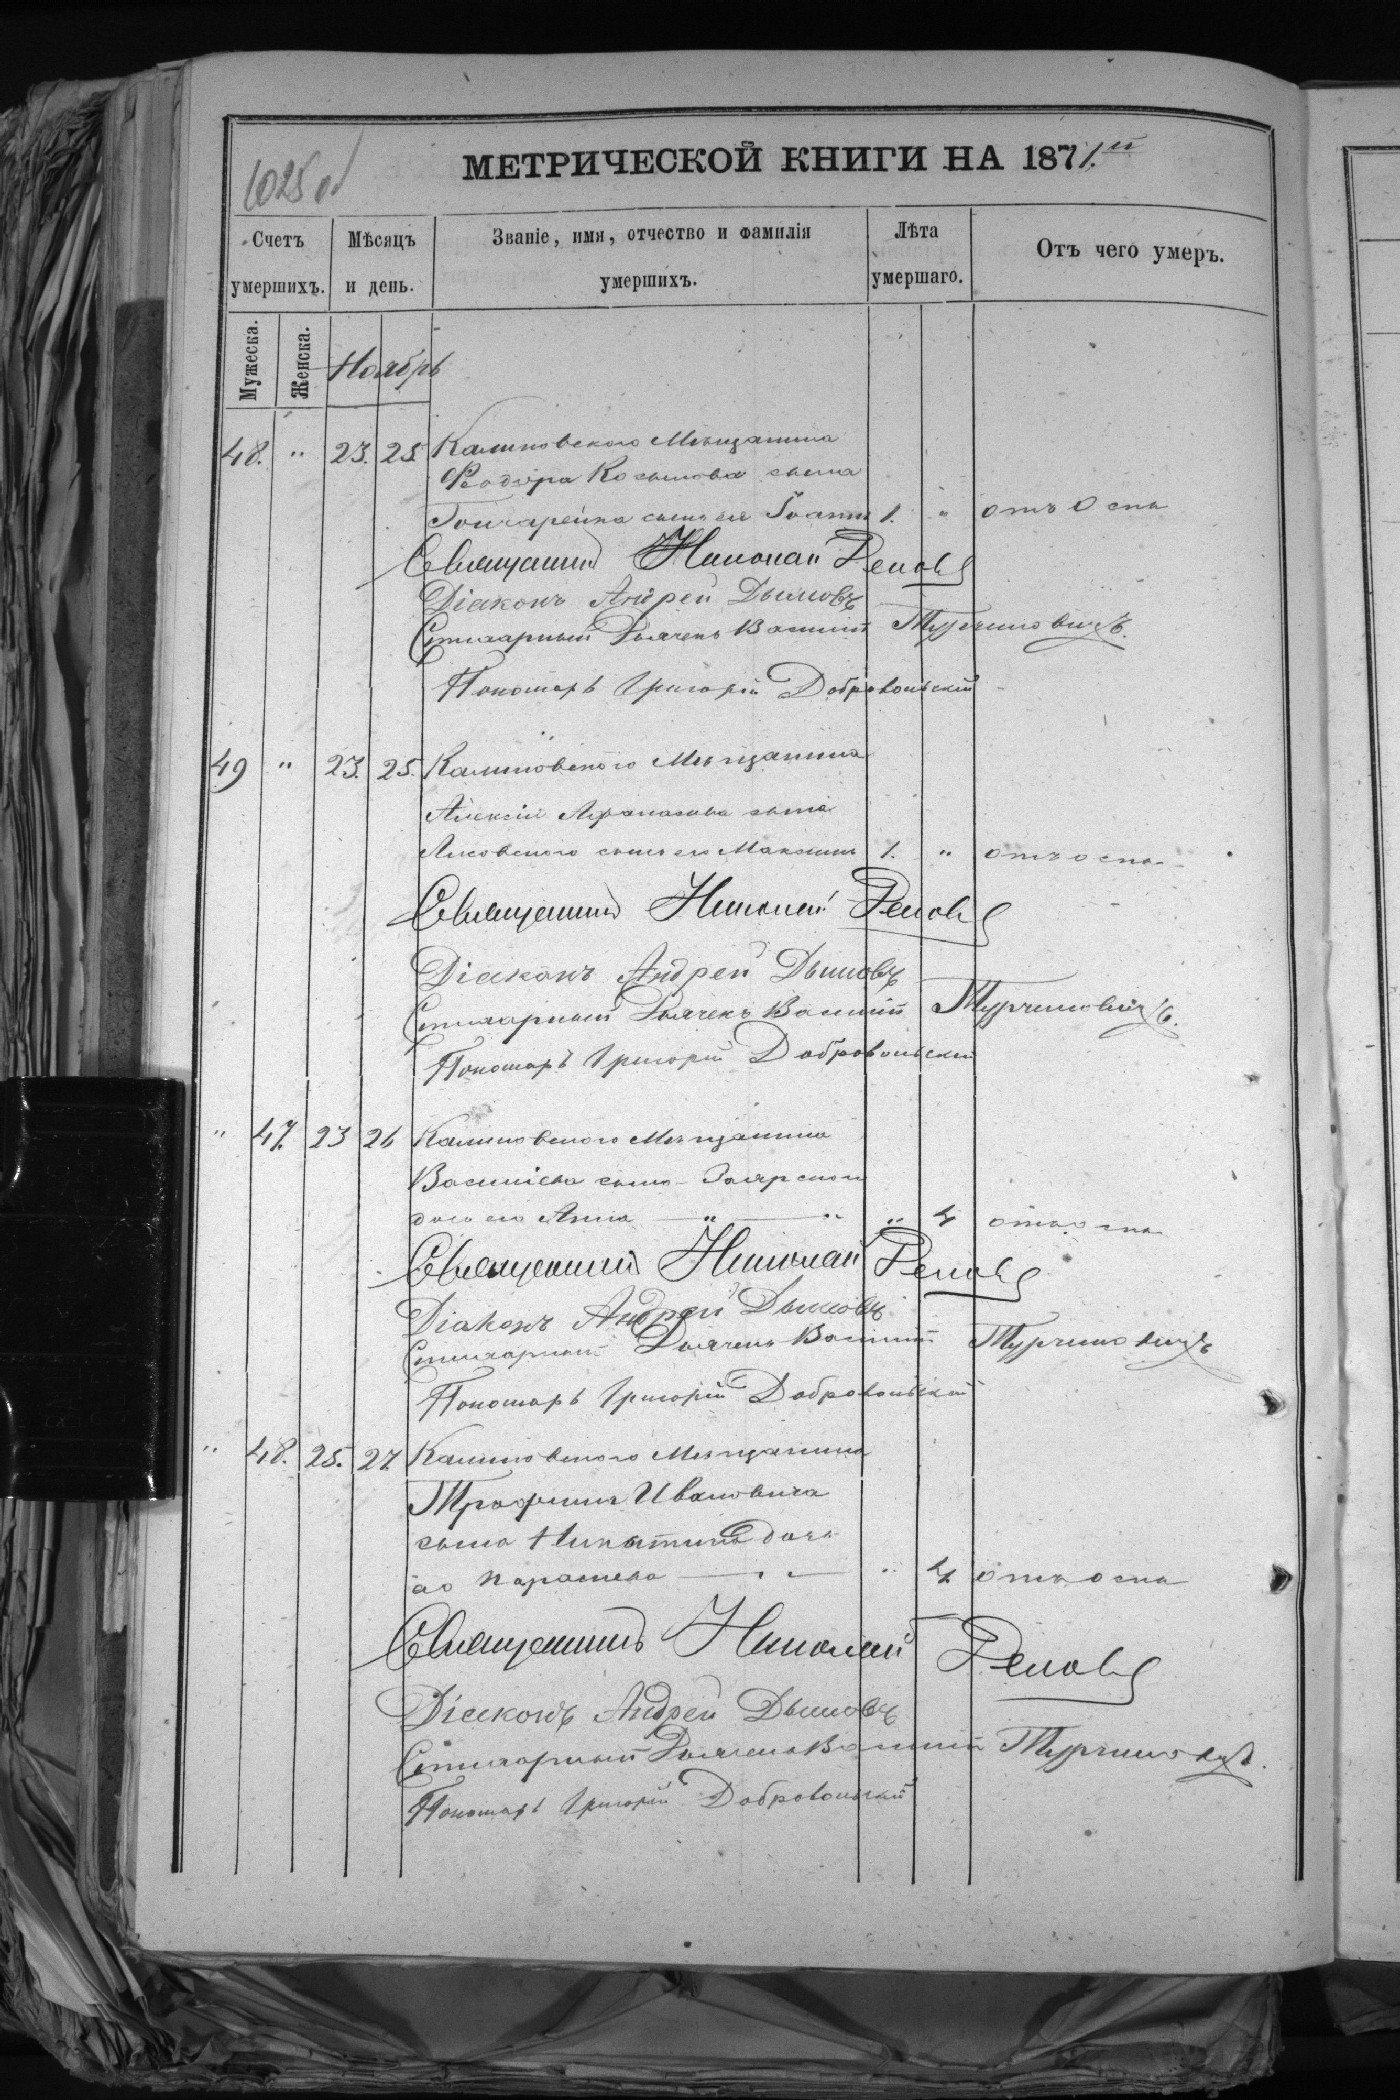 1025 об
МЕТРИЧЕСКОЙ КНИГИ НА 1871.й
Счетъ умершихъ.
Мѣсяцъ и день.
Званіе, имя, отчество и фамилія умершихъ.
Лѣта умершаго.
Отъ чего умеръ.
Мужеска.
Женска.
Ноябрь
48. " 23. 25. Калиновского Мѣщанина
Феодора Косьмова сына
Гончаренка сынъ его Іоаннъ 1. " отъ Оспы
Священникъ Николай
Діаконъ Андрей Дымовъ
Стихарный Дьячекъ Василій Турчиновичъ.
Пономарь Григорій Добровольскій
49 " 23. 25. Калиновского Мѣщанина
Алексѣй Афанасова сына
Лисовского сынъ его Максимъ 1. " отъ оспы
Священникъ Николай
Діаконъ Андрей Дымовъ
Стихарный Дьячекъ Василій Турчиновичъ.
Пономарь Григорій Добровольскій
" 47. 23 26 Калиновского Мѣщанина
Василіева сына
дочь его Анна — " — " " 4 отъ оспы
Священникъ Николай
Діаконъ Андрей Дымовъ
Стихарный Дьячекъ Василій Турчиновичъ
Пономарь Григорій Добровольскій
" 48. 25. 27. Калиновского Мѣщанина
Трофима Ивановича
сына Никитина дочь
его Параскева — . — " 4 отъ оспы
Священникъ Николай
Діаконъ Андрей Дымовъ
Стихарный Дьячекъ Василій Турчиновичъ.
Пономарь Григорій Добровольскій